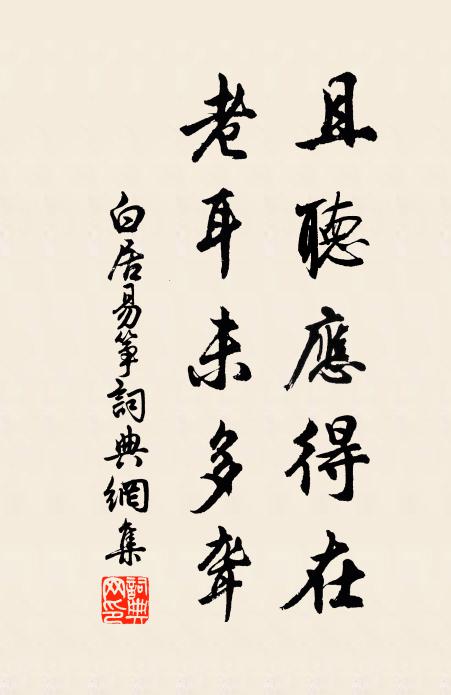 且聽應得在
老耳未多聾
白居易箏詞典網集
詞典网印